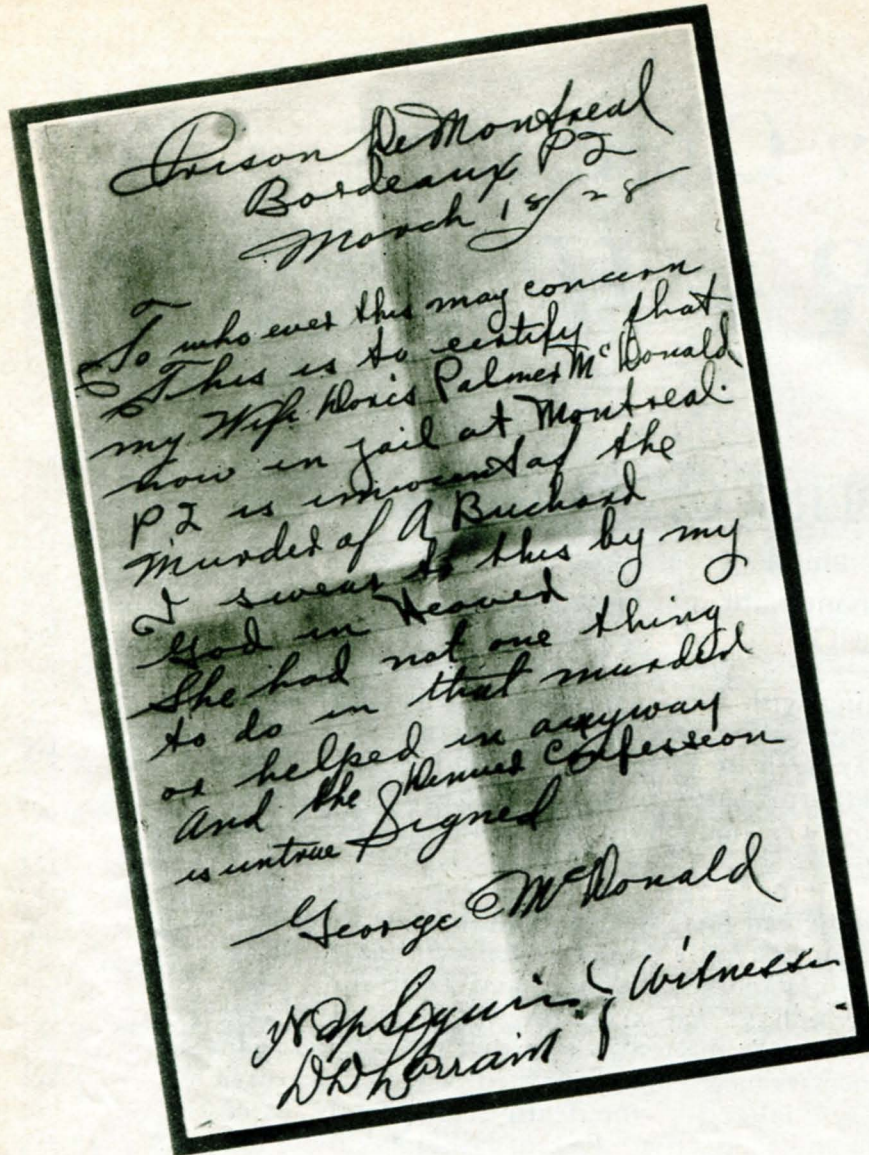 Prison De Montreal
Bordeaux P2
March 18/28
To who ever this may concern
This is to certify that
my Wife Doris Palmer McDonald
now in jail at Montreal
P2 is innocent of the
Murder of A Buchard
I swear to this by my
God in Heaven
She had not one thing
to do in that murder
or helped in anyway
And the Denver Confession
is untrue Signed
George McDonald
Seguin } Witness
D D Lorrain